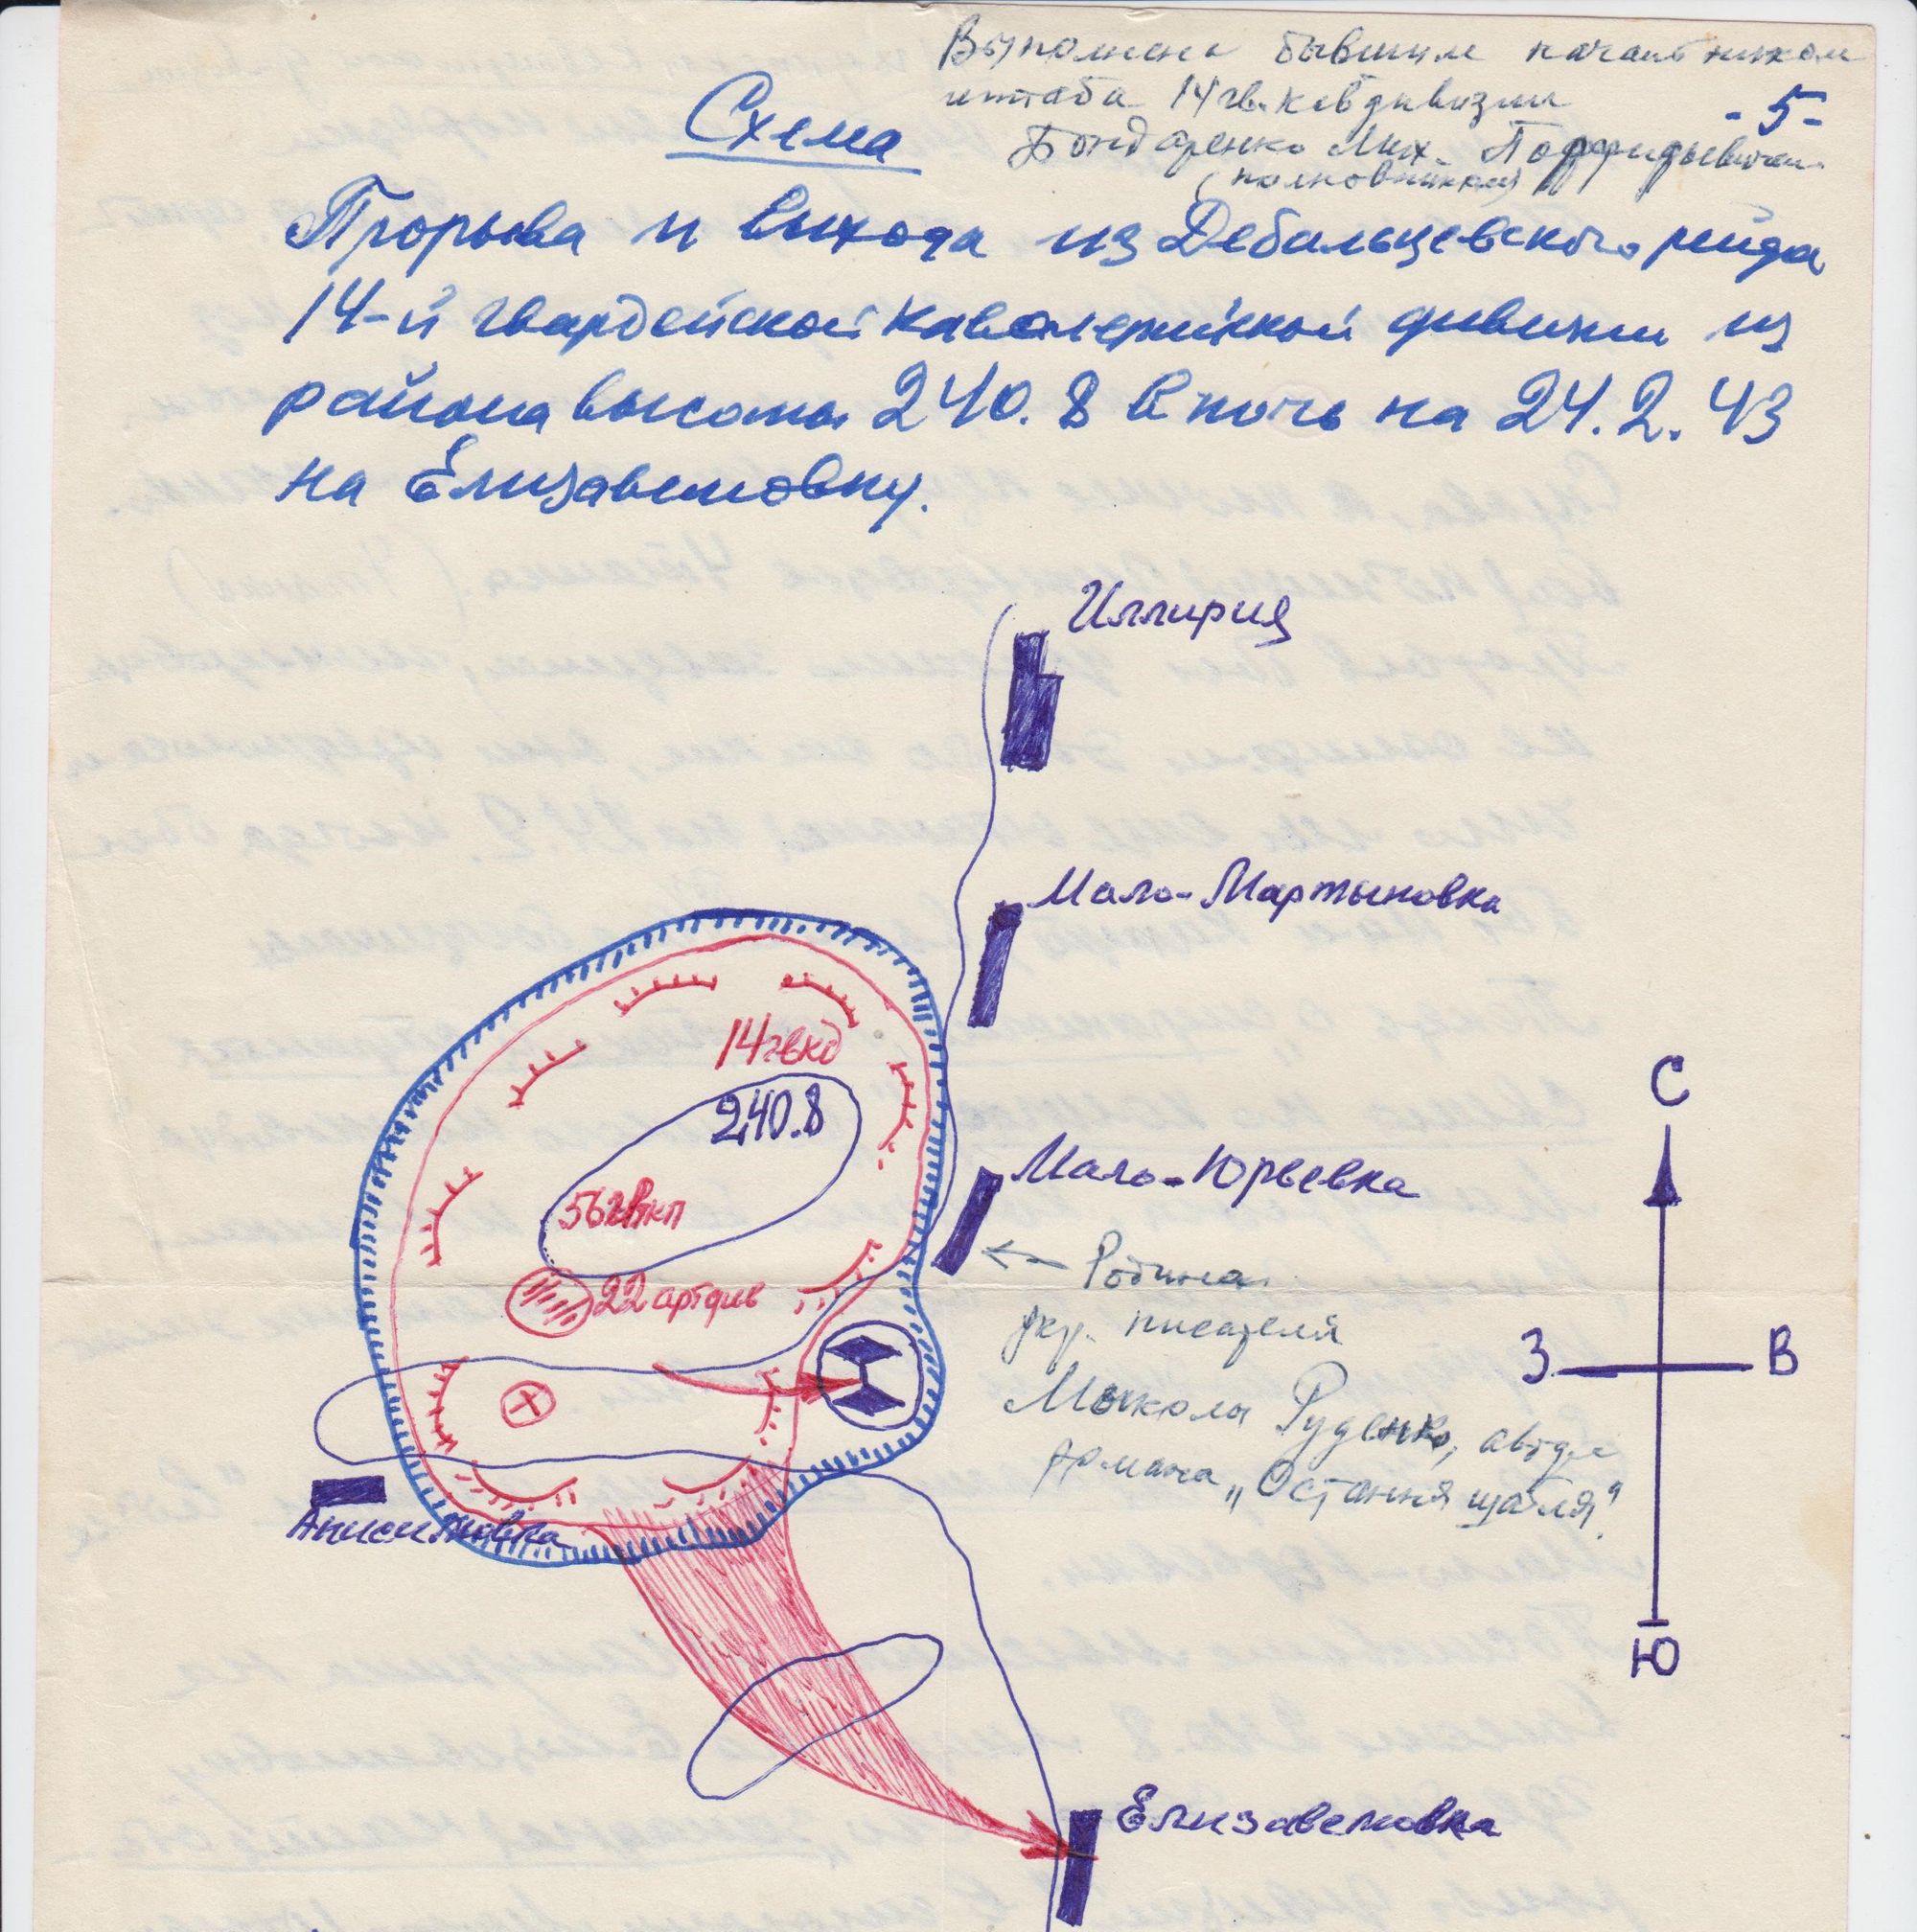 Выполнена бывшим начальником
штаба 14 гв. кавдивизии
- 5 -
Бондаренко Мих. Порфирьевичем
(полковником)
Схема
Прорыва и выхода из Дебальцевского рейда
14-й гвардейской кавалерийской дивизии из
района высоты 240.8 в ночь на 24.2.43
на Елизаветовку.
Иллирия
Мало-Мартыновка
14 гвкд
240.8
С
Мало-Юрьевка
56 гвкп
← Родина
22 артдив
укр. писателя
З
В
Мыкола Руденко, автора
романа „Остання шабля“.
Анисимовка
Ю
Елизаветовка